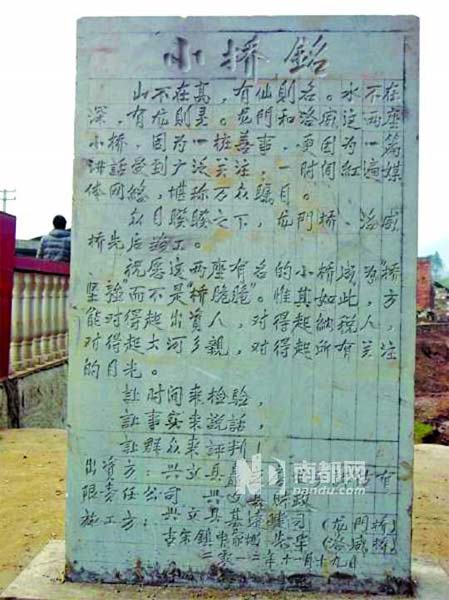 小桥銘
山不在高，有仙則名。水不在
深，有龙則灵。龙門和洛威这两座
小桥，因为一桩善事，更因为一篇
讲話受到广泛关注，一时间紅遍媒
体网絡，堪称万众矚目。
众目睽睽之下，龙門桥、洛威
桥先后竣工。
祝愿这两座有名的小桥成为"桥
堅強而不是"桥脆脆"。惟其如此，方
能对得起出資人，对得起納税人，
对得起大河乡親，对得起所有关注
的目光。
让时间来检验，
让事实来説話，
让群众来評判！
出資方：兴文具 有
限责任公司 兴文 财政
施工方：兴文具基 司（龙門桥）
古宋鎮 （洛威桥）
二零一二年十一月十九日
南都网
nandu.com